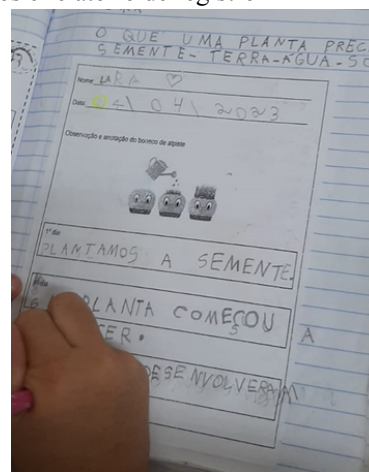 O QUE UMA PLANTA PREC
SEMENTE - TERRA - AGUA - SO
Nome LARA
Data 04\ 04\ 2023
Observação e anotação do boneco de alpiste
1º dia
PLANTAMOS A SEMENTE.
PLANTA COMEÇOU A
CER.
DESENVOLVERAM